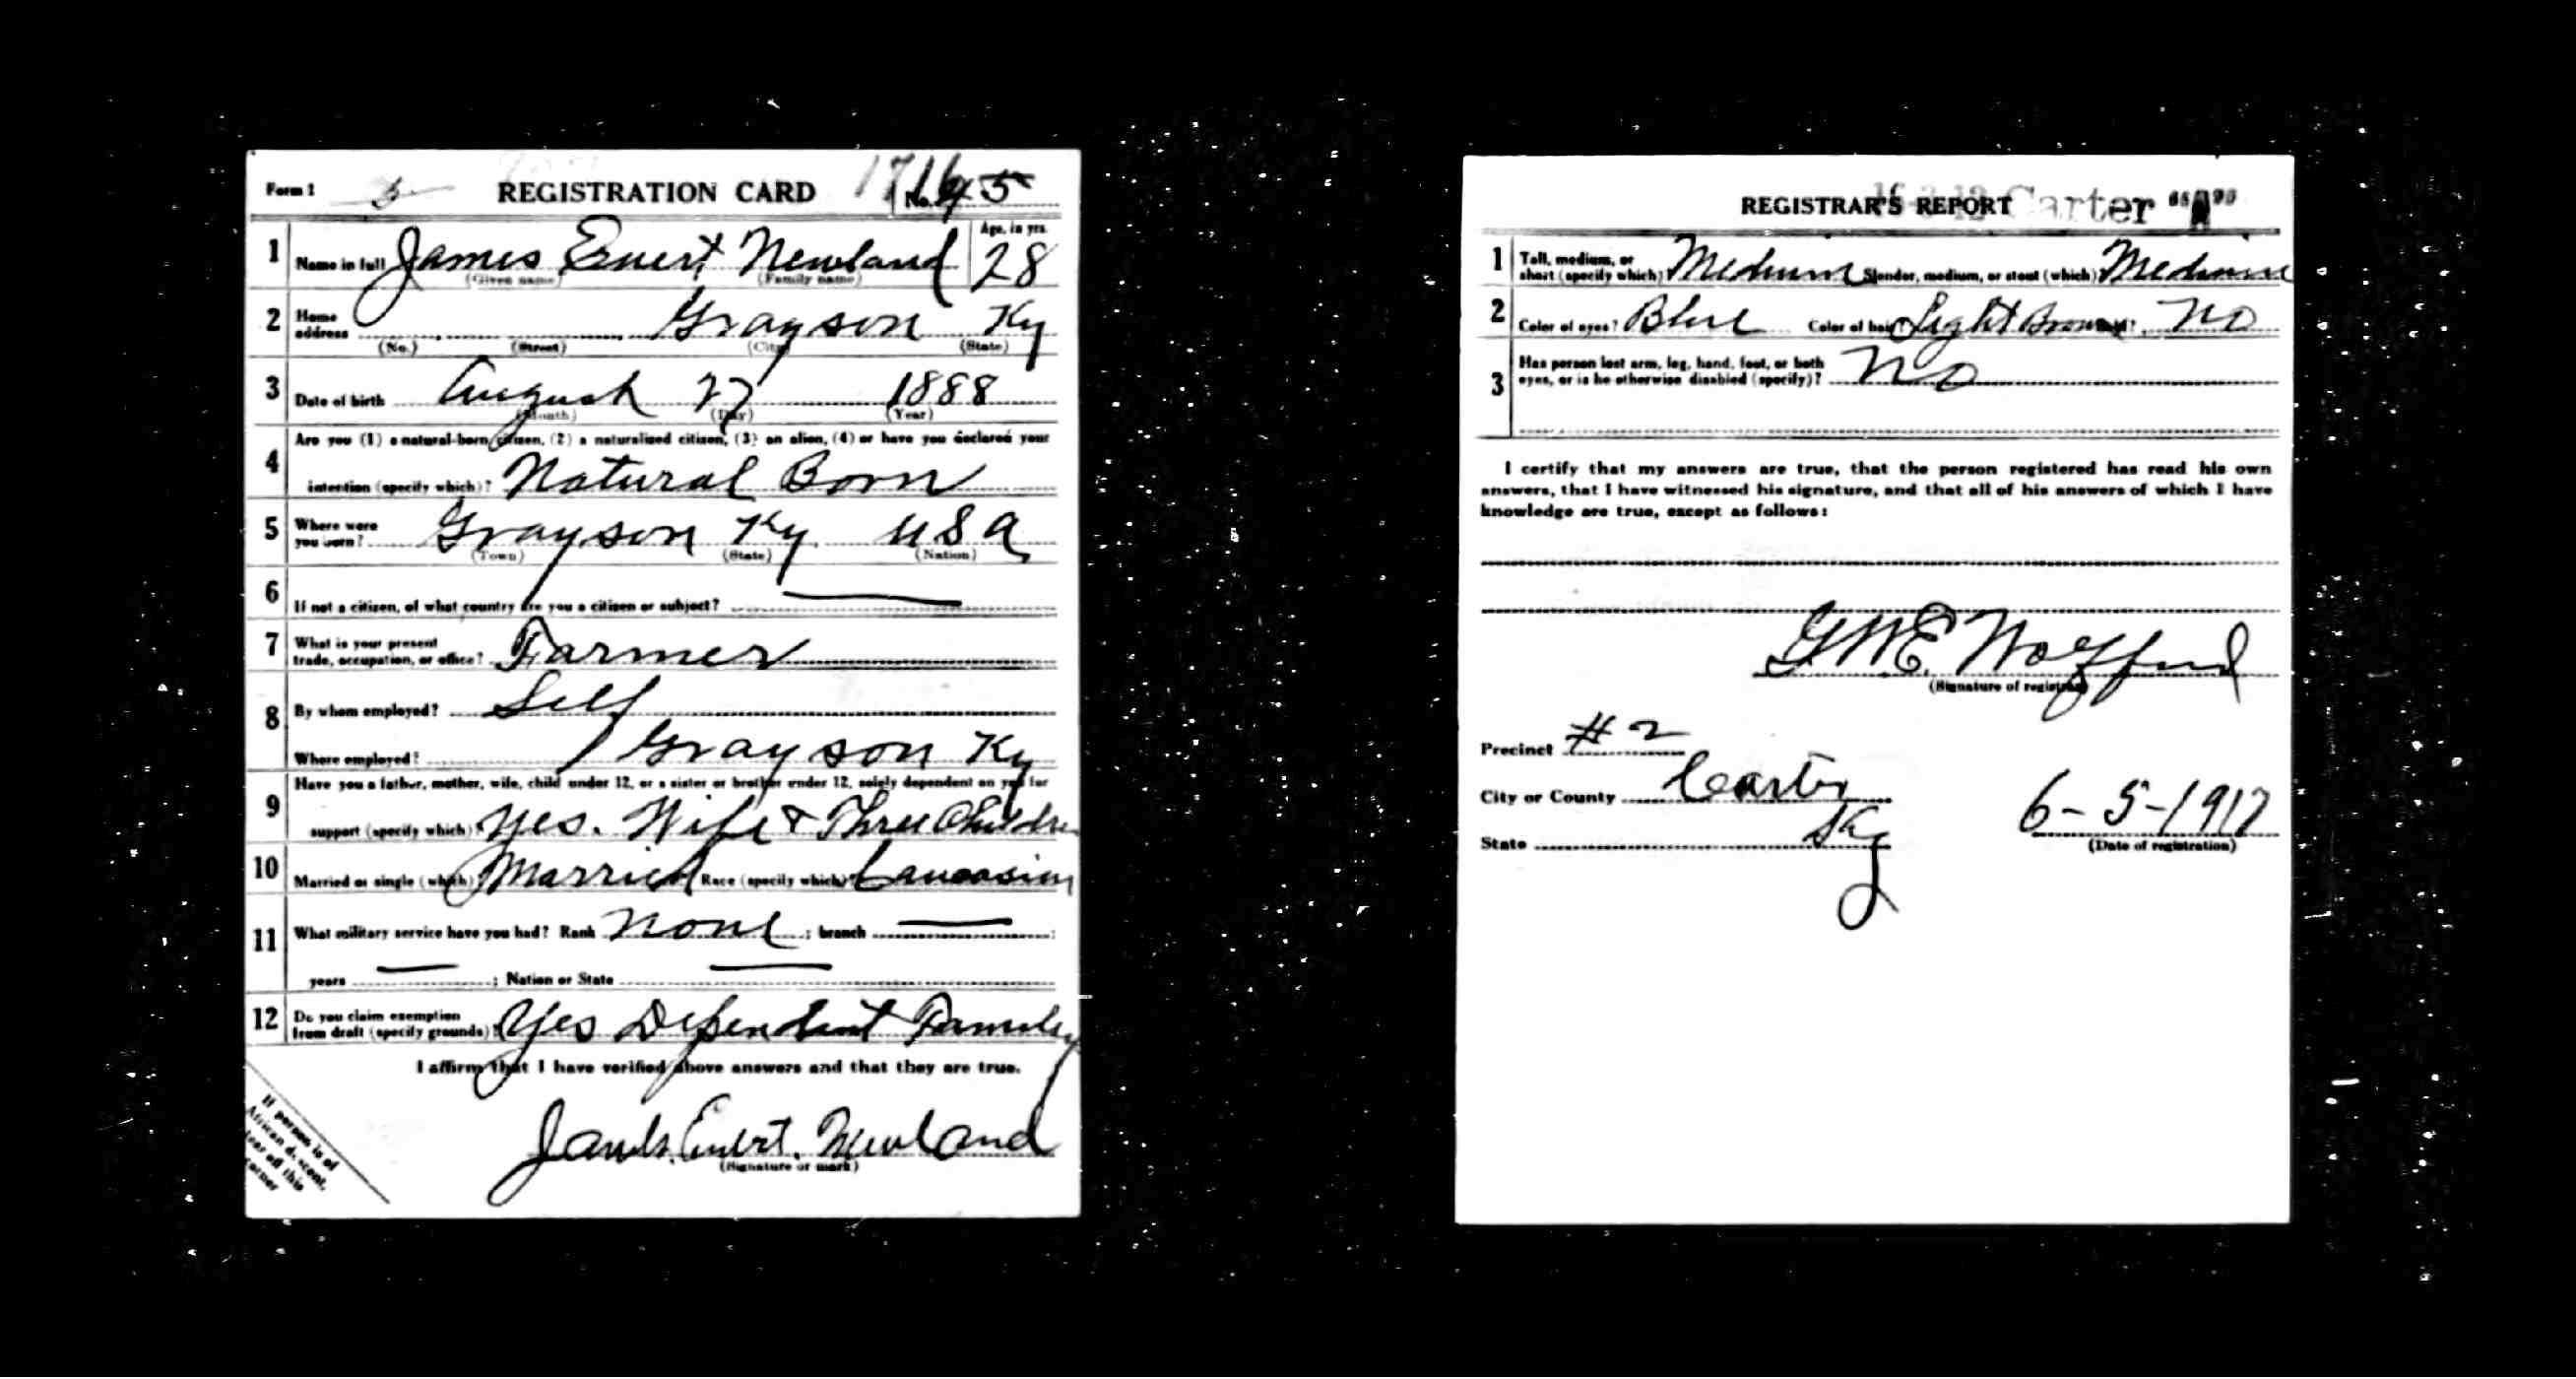 Form 1 REGISTRATION CARD No. 45
1 Name in full James Ewert Newland Age, in yrs. 28
(Given name) (Family name)
2 Home address Grayson Ky
(No.) (Street) (City) (State)
3 Date of birth August 27 1888
(Month) (Day) (Year)
4 Are you (1) a natural-born citizen, (2) a naturalized citizen, (3) an alien, (4) or have you declared your
intention (specify which)? Natural Born
5 Where were you born? Grayson Ky USA
(Town) (State) (Nation)
6 If not a citizen, of what country are you a citizen or subject?
7 What is your present
trade, occupation, or office? Farmer
8 By whom employed? Self
Where employed? Grayson Ky
9 Have you a father, mother, wife, child under 12, or a sister or brother under 12, solely dependent on you for
support (specify which)? Yes. Wife & Three Children
10 Married or single (which)? Married Race (specify which)? Caucasian
11 What military service have you had? Rank None ; branch ;
years ; Nation or State
12 Do you claim exemption
from draft (specify grounds)? Yes Dependent Family
I affirm that I have verified above answers and that they are true.
Newland
(Signature or mark)
If person is of
African descent,
tear off this
corner
REGISTRAR'S REPORT Carter "A"
1 Tall, medium, or
short (specify which)? Medium Slender, medium, or stout (which)? Medium
2 Color of eyes? Blue Color of hair? Light Brown Bald? No
3 Has person lost arm, leg, hand, foot, or both
eyes, or is he otherwise disabled (specify)? No
I certify that my answers are true, that the person registered has read his own
answers, that I have witnessed his signature, and that all of his answers of which I have
knowledge are true, except as follows:
G.W.E. Wolfford
(Signature of registrar)
Precinct #2
City or County Carter
State Ky
6-5-1917
(Date of registration)